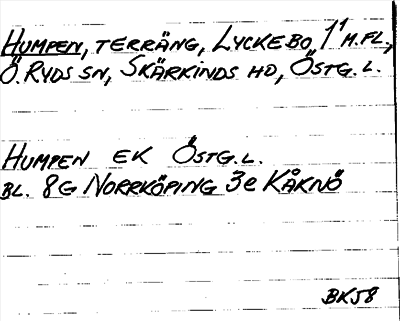 HUMPEN, TERRÄNG, LYCKEBO 1¹ M.FL.,
Ö. RYDS SN, SKÄRKINDS HD, ÖSTG. L.
HUMPEN EK ÖSTG. L.
BL. 8G NORRKÖPING 3e KÅKNÖ
BK58